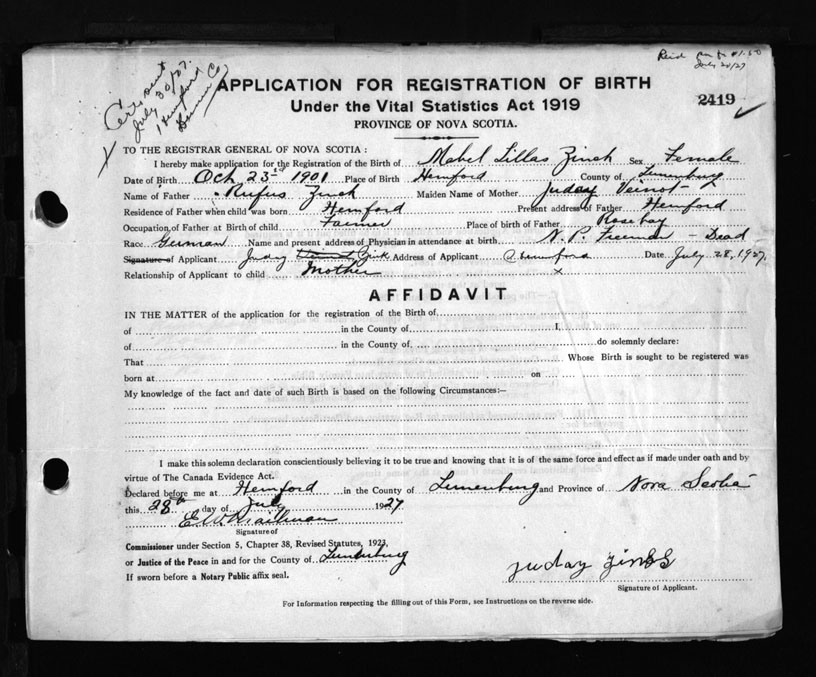 Cert sent
July 30/27.
Hemford
Co
July 28/27
APPLICATION FOR REGISTRATION OF BIRTH
Under the Vital Statistics Act 1919
2419
PROVINCE OF NOVA SCOTIA.
TO THE REGISTRAR GENERAL OF NOVA SCOTIA :
I hereby make application for the Registration of the Birth of Mabel Lillas Zinck Sex Female
Date of Birth Oct 23rd 1901 Place of Birth Hemford County of Lunenburg
Name of Father Rufus Zinck Maiden Name of Mother Juday Veinot
Residence of Father when child was born Hemford Present address of Father Hemford
Occupation of Father at Birth of child Farmer Place of birth of Father Rosebay
Race German Name and present address of Physician in attendance at birth N. P. Freeman - Dead
Signature of Applicant Judy Zink Address of Applicant Hemford Date July 28, 1927
Relationship of Applicant to child Mother x
AFFIDAVIT
IN THE MATTER of the application for the registration of the Birth of
of in the County of I,
of in the County of, do solemnly declare:
That Whose Birth is sought to be registered was
born at on
My knowledge of the fact and date of such Birth is based on the following Circumstances:—
I make this solemn declaration conscientiously believing it to be true and knowing that it is of the same force and effect as if made under oath and by
virtue of The Canada Evidence Act.
Declared before me at Hemford in the County of Lunenburg and Province of Nova Scotia
this 28th day of July 1927
E. W. Mailman
Signature of
Commissioner under Section 5, Chapter 38, Revised Statutes, 1923,
or Justice of the Peace in and for the County of Lunenburg
If sworn before a Notary Public affix seal.
juday zinck
Signature of Applicant.
For Information respecting the filling out of this Form, see Instructions on the reverse side.